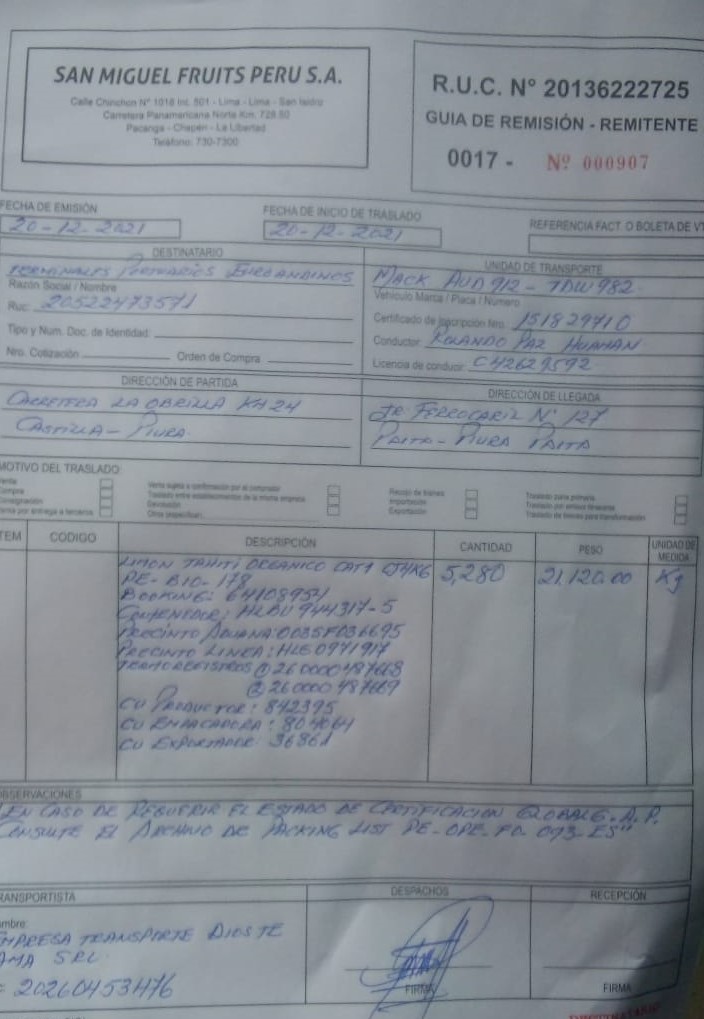 SAN MIGUEL FRUITS PERU S.A.
Calle Chinchon Nº 1018 Int. 501 - Lima - Lima - San Isidro
Carretera Panamericana Norte Km. 728.50
Pacanga - Chepen - La Libertad
Teléfono: 730-7300
R.U.C. N° 20136222725
GUIA DE REMISIÓN - REMITENTE
0017 - Nº 000907
FECHA DE EMISIÓN
20-12-2021
FECHA DE INICIO DE TRASLADO
20-12-2021
REFERENCIA FACT. O BOLETA DE VT
DESTINATARIO
TERMINALES PORTUARIOS EUROANDINOS
Razón Social / Nombre
Ruc: 20522473571
Tipo y Num. Doc. de Identidad:
Nro. Cotización Orden de Compra
UNIDAD DE TRANSPORTE
MACK AUD 912 - TDW 982
Vehículo Marca / Placa / Número
Certificado de Inscripción Nro. 151829710
Conductor: ROLANDO PAZ HUAMAN
Licencia de conducir: C42629592
DIRECCIÓN DE PARTIDA
CARRETERA LA OBRILLA KM 24
CASTILLA - PIURA
DIRECCIÓN DE LLEGADA
JR. FERROCARIL Nº 127
PAITA - PIURA PAITA
MOTIVO DEL TRASLADO:
Venta sujeta a confirmación por el comprador
Traslado entre establecimientos de la misma empresa
Devolución
Otros (especificar)
Recojo de bienes
Importación
Exportación
Traslado zona primaria
Traslado por emisor itinerante
Traslado de bienes para transformación
TEM CÓDIGO DESCRIPCIÓN CANTIDAD PESO UNIDAD DE MEDIDA
LIMON TAHITI ORGANICO CAT1 CJ4KG 5,280 21,120.00 Kg
PE-BIO-178
BOOKING: 64108954
CONTENEDOR: HLBU 944317-5
PRECINTO ADUANA: 0035F036695
PRECINTO LINEA: HLE0971917
TERMOREGISTROS ① 260000487668
② 260000487669
CU PRODUCTOR: 842395
CU EMPACADORA: 804064
CU EXPORTADOR: 36861
OBSERVACIONES
EN CASO DE REQUERIR EL ESTADO DE CERTIFICACION GLOBALG.A.P.
CONSULTE EL ARCHIVO DE PACKING LIST PE-OPE-FO-093-ES"
RANSPORTISTA
ombre:
EMPRESA TRANSPORTE DIOS TE
AMA SRL
: 20260453476
DESPACHOS
FIRMA
RECEPCIÓN
FIRMA